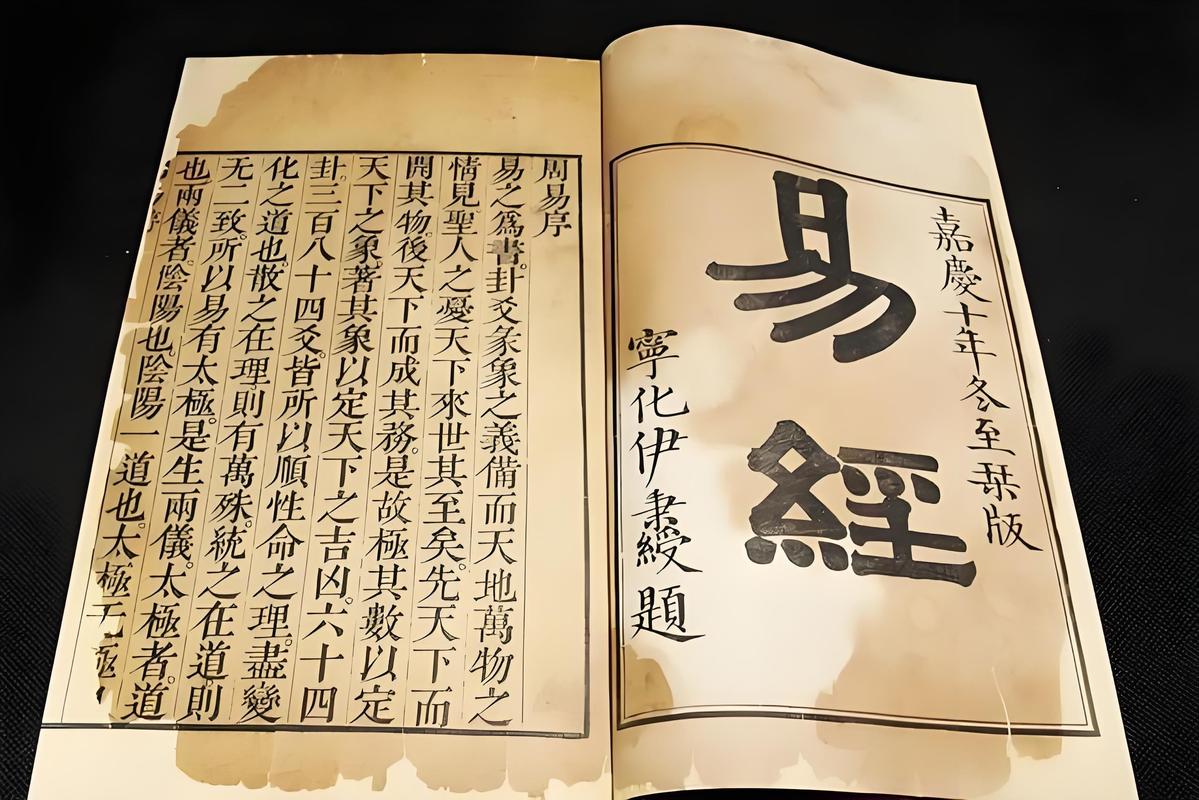 嘉慶十年冬至栞版
易經
寧化伊秉綬題
周易序
易之爲書。卦爻彖象之義備而天地萬物之
情見。聖人之憂天下來世其至矣。先天下而
開其物。後天下而成其務。是故極其數以定
天下之象。著其象以定天下之吉凶。六十四
卦。三百八十四爻。皆所以順性命之理。盡變
化之道也。散之在理。則有萬殊。統之在道。則
无二致。所以易有太極。是生兩儀。太極者。道
也。兩儀者。陰陽也。陰陽一道也。太極无極